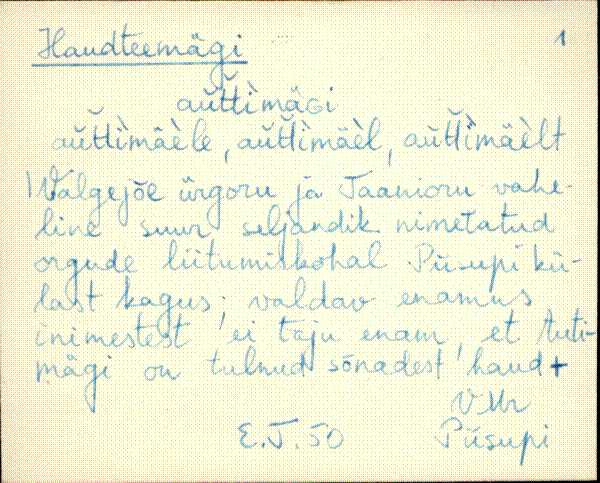 Haudteemägi 1
aŭt̆t̀ìmäGi
aŭt̆t̀ìmäèle, aŭt̆t̀ìmäèl, aŭt̆t̀ìmäèlt
Valgejõe ürgoru ja Jaanioru vahe-
line suur seljandik nimetatud
orgude liitumiskohal Piisupi kü-
last kagus; valdav enamus
inimestest ei taju enam, et tuti-
mägi on tulnud sõnadest haud +
VMr
E.J.50 Piisupi